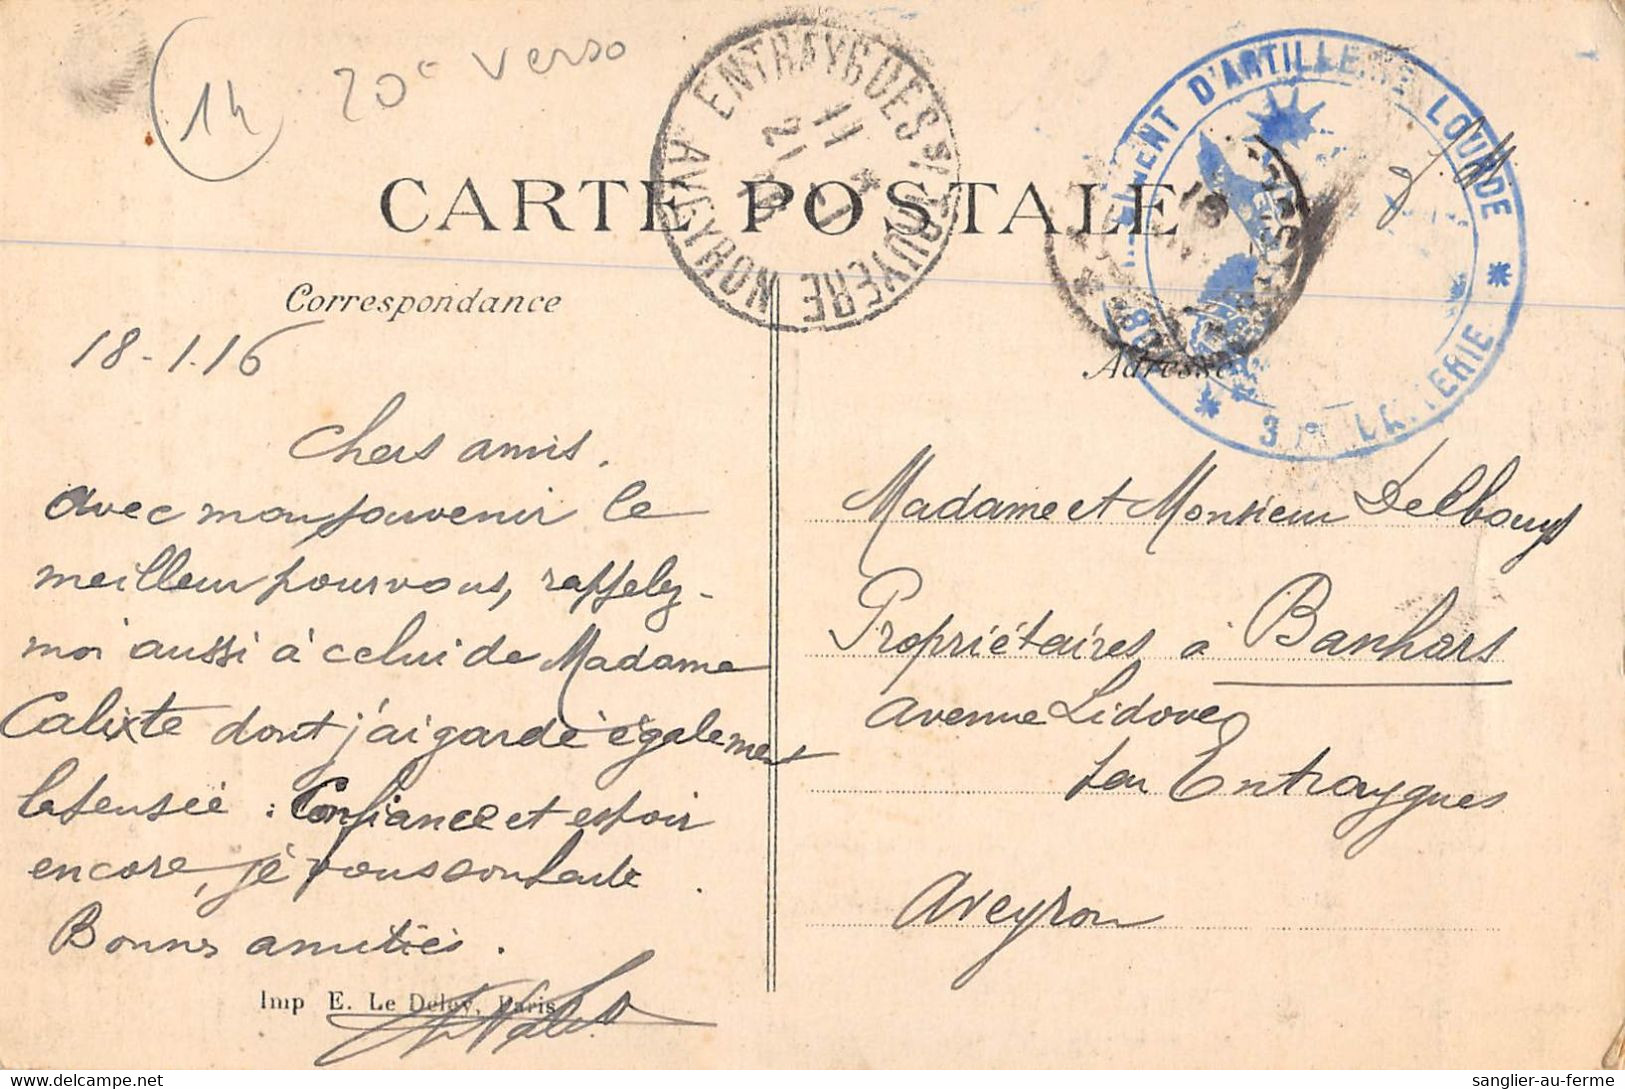 14
20c verso
ENTRAYGUES S/ TRUYÈRE
11 *
21
AVEYRON
MENT D'ARTILLERIE LOURDE
3 BATTERIE
CARTE POSTALE
Correspondance
Adresse
18-1.16
Chers amis.
avec mon souvenir le
meilleur pour vous, rappelez-
moi aussi à celui de Madame
Calixte dont j'ai gardé également
la pensée : Confiance et espoir
encore, je vous souhaite.
Bonnes amitiés.
Imp E. Le Deley, Paris
Madame et Monsieur Delbouys
Propriétaires à Banhars
avenue Lidove
par Entraygues
Aveyron
sanglier-au-ferme